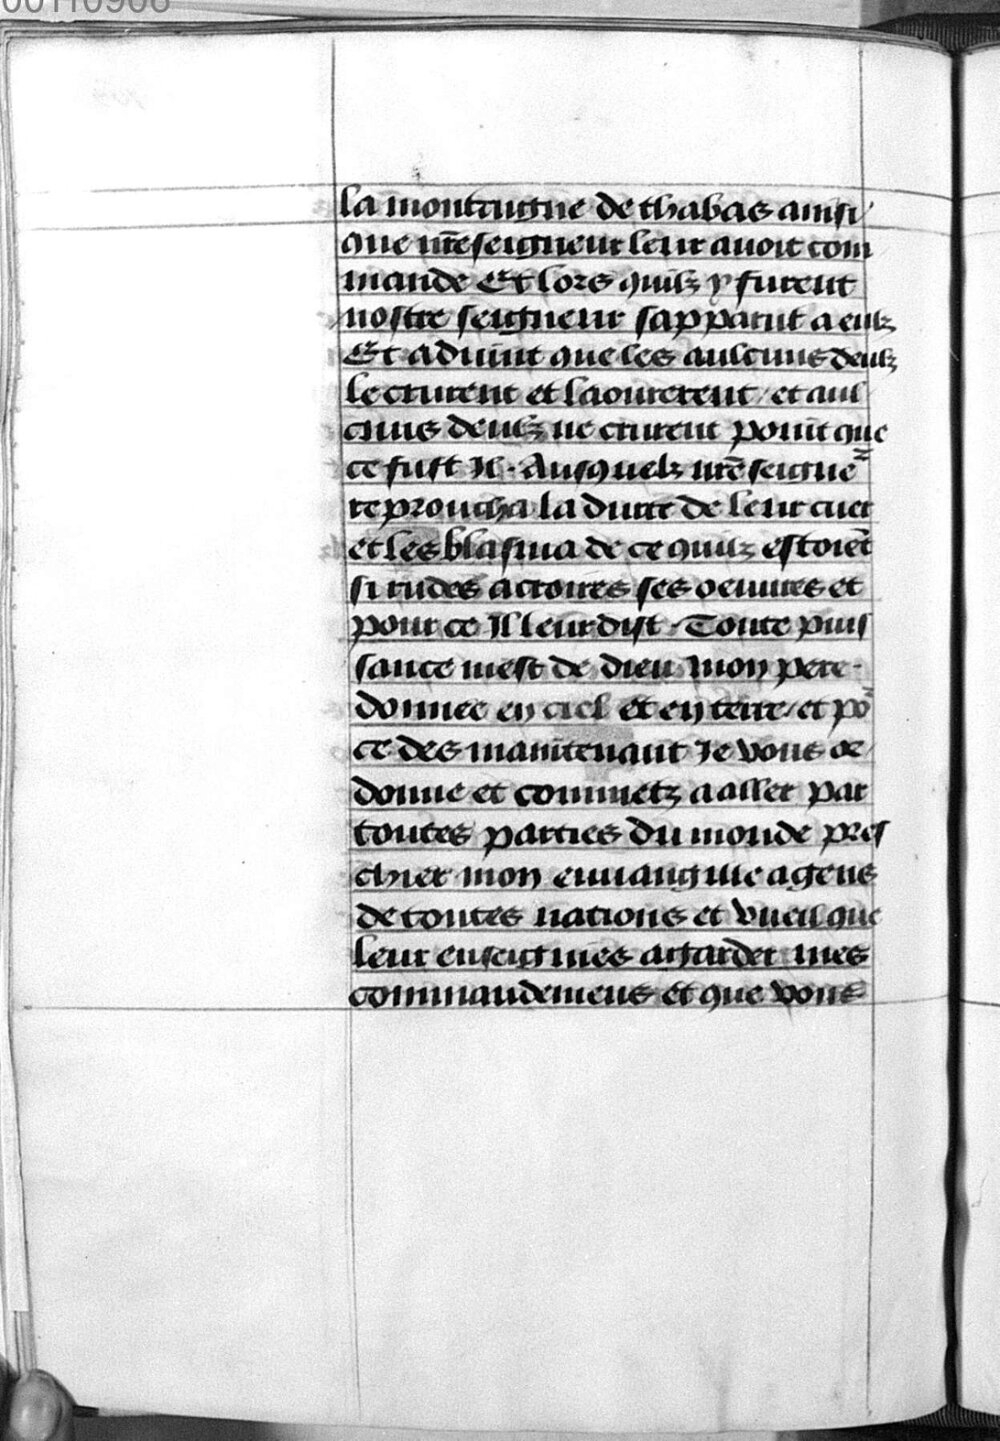 00110906
la montaigne de thabas ainsi
que nr̃e seigneur leur auoit com
mande Et lors quilz y furent
nostre seigneur sapparut a eulz
Et aduint que les aulcuns deulz
le crurent et laourerent / et aul
cuns deulz ne crurent point que
ce fust Il · Ausquelz nr̃e seigne᷑
reproucha la durte de leur cuer
et les blasma de ce quilz estoiẽt
si rudes a croires ses oeuures et
pour ce Il leur dist · Toute puis
sance mest de dieu mon pere ·
donnee en ciel et en terre / et po᷑
ce des maintenant Je vous or
donne et commetz a aller par
toutes parties du monde pres
chier mon euuangille a gens
de toutes nations et vueil que
leur enseignies a garder mes
commandemens et que vous